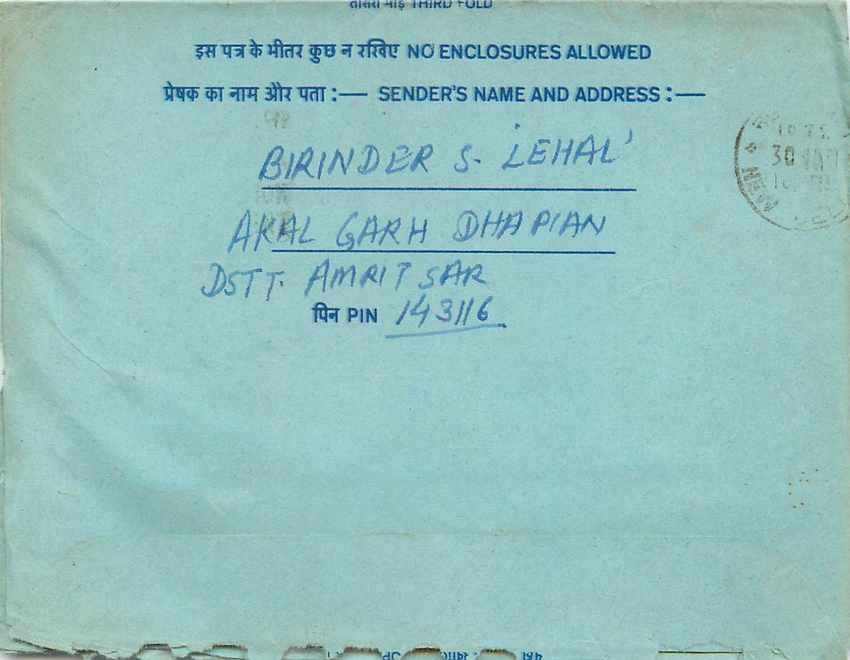 तीसरा मोड़ THIRD FOLD
इस पत्र के भीतर कुछ न रखिए NO ENCLOSURES ALLOWED
प्रेषक का नाम और पता :— SENDER'S NAME AND ADDRESS :—
BIRINDER S. 'LEHAL'
AKAL GARH DHAPIAN
DSTT. AMRITSAR
पिन PIN 143116
30
NEW